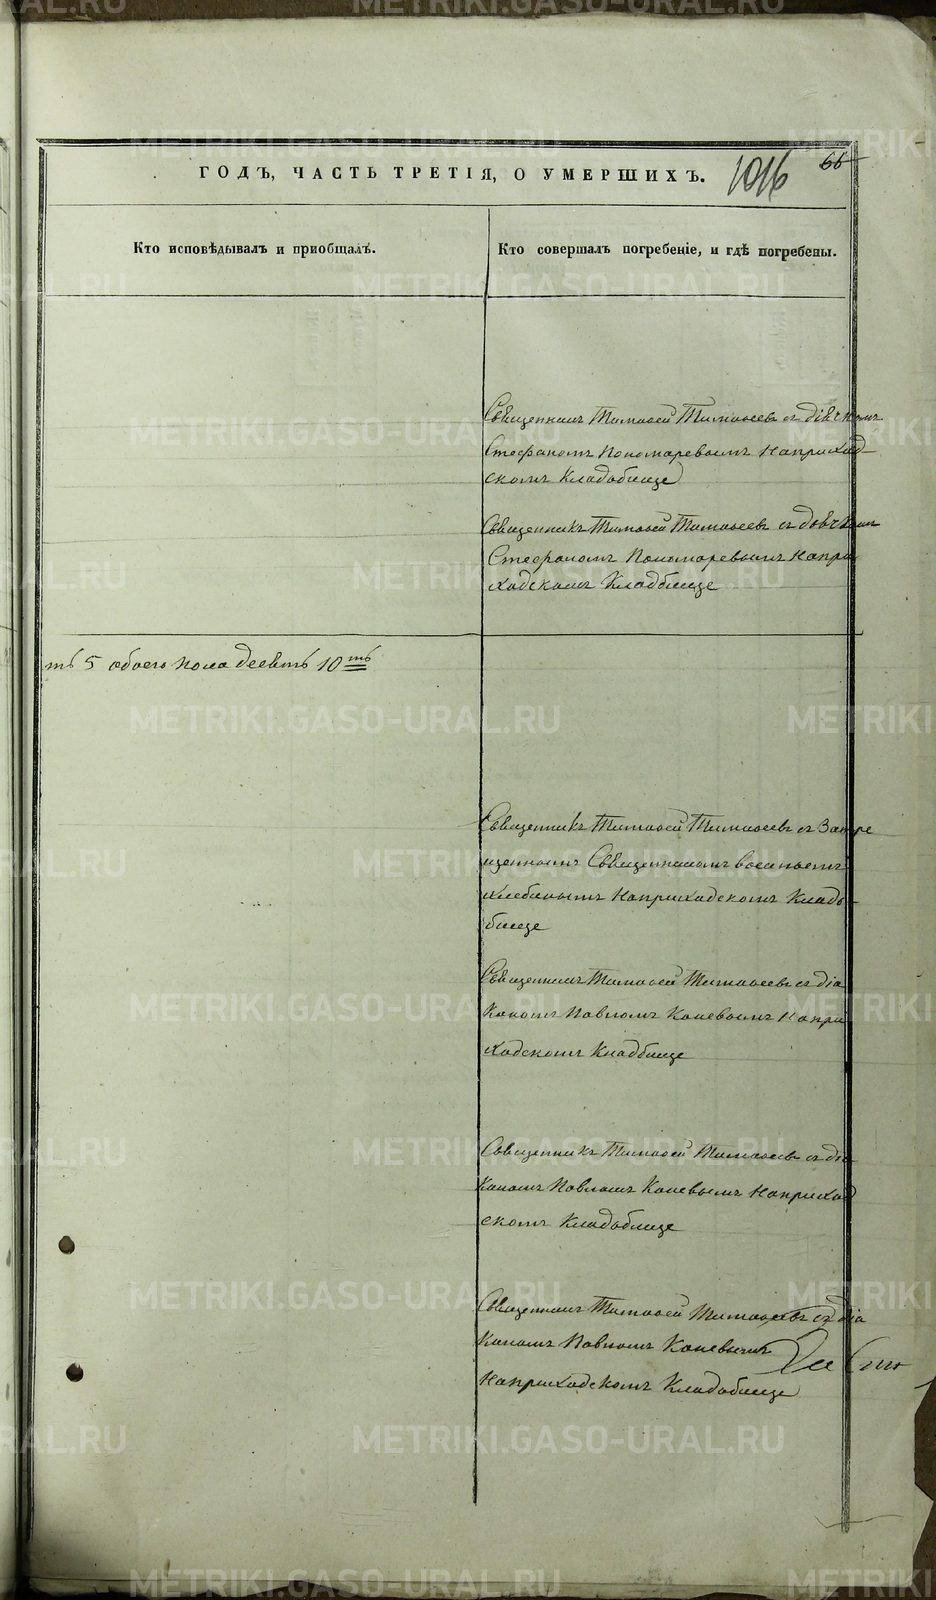 ГОДЪ, ЧАСТЬ ТРЕТІЯ, О УМЕРШИХЪ.
1016
66
Кто исповѣдывалъ и пріобщалъ.
Кто совершалъ погребеніе, и гдѣ погребены.
Священникъ Тимоѳей Тимоѳеевъ съ
Стефаномъ Пономаревымъ Наприход
скомъ Кладобище
Священникъ Тимоѳей Тимоѳеевъ съ
Стефаномъ Пономаревымъ Напри
ходскомъ Кладбище
ть 5 обоего пола 10ть
Священникъ Тимоѳей Тимоѳеевъ съ Запре
щеннымъ Священникомъ
Хлебинымъ Наприходскомъ Кладо
бище
Священникъ Тимоѳей Тимоѳеевъ съ діа
кономъ Павломъ Каневымъ Напри
ходскомъ Кладбище
Священникъ Тимоѳей Тимоѳеевъ съ діа
кономъ Павломъ Каневымъ Наприход
скомъ Кладобище
Священникъ Тимоѳей Тимоѳеевъ съ діа
кономъ Павломъ Каневымъ
Наприходскомъ Кладобище
METRIKI.GASO-URAL.RU